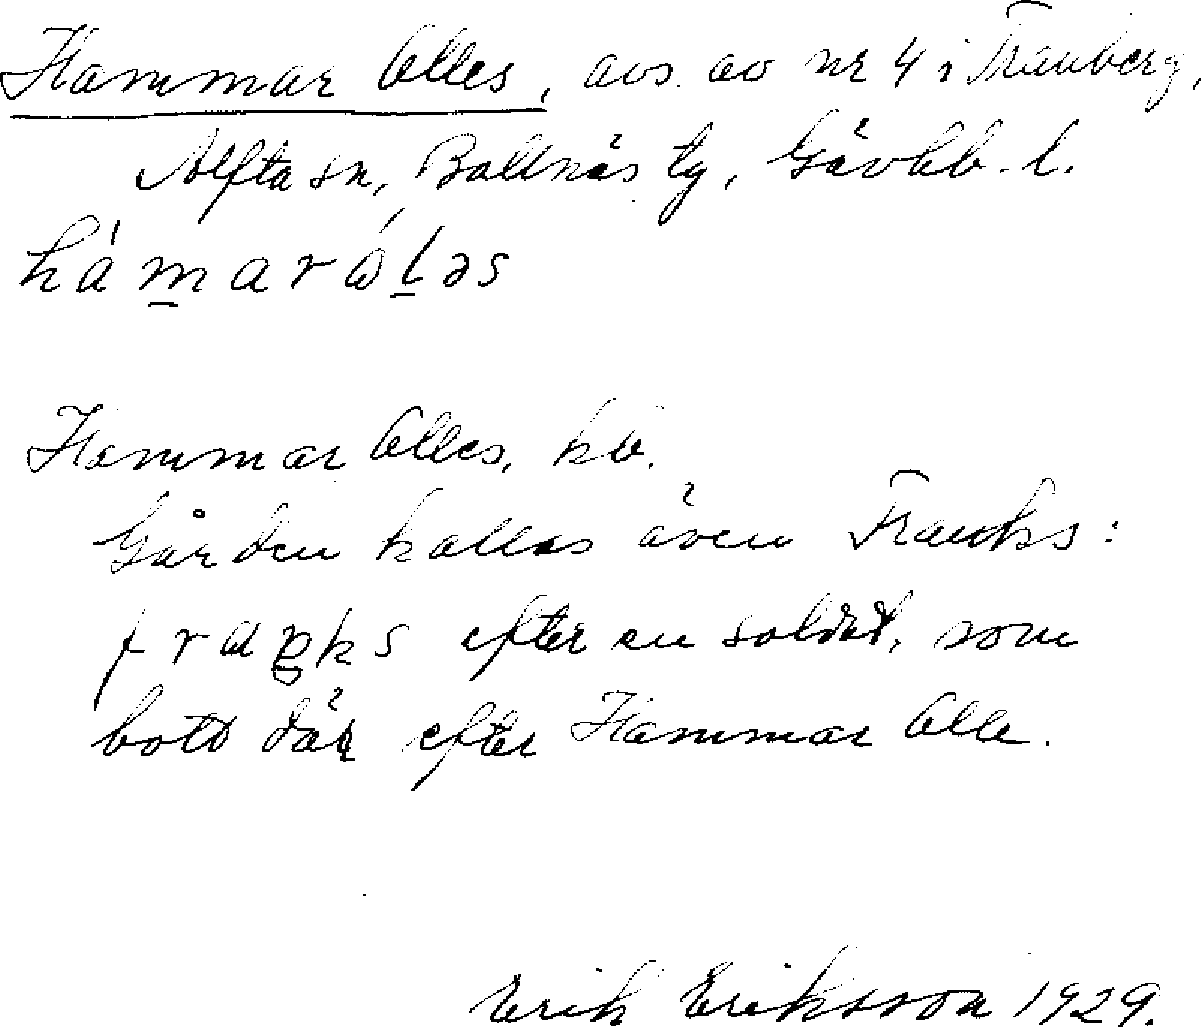 Hammar Olles, avs. av nr 4 i Tranberg,
Alfta sn, Bollnäs tg, Gävlb. l.
hámaróləs
Hammar Olles, kb.
Gården kallas även Franks:
fraŋks efter en soldat, som
bott där efter Hammar Olle.
Erik Eriksson 1929.